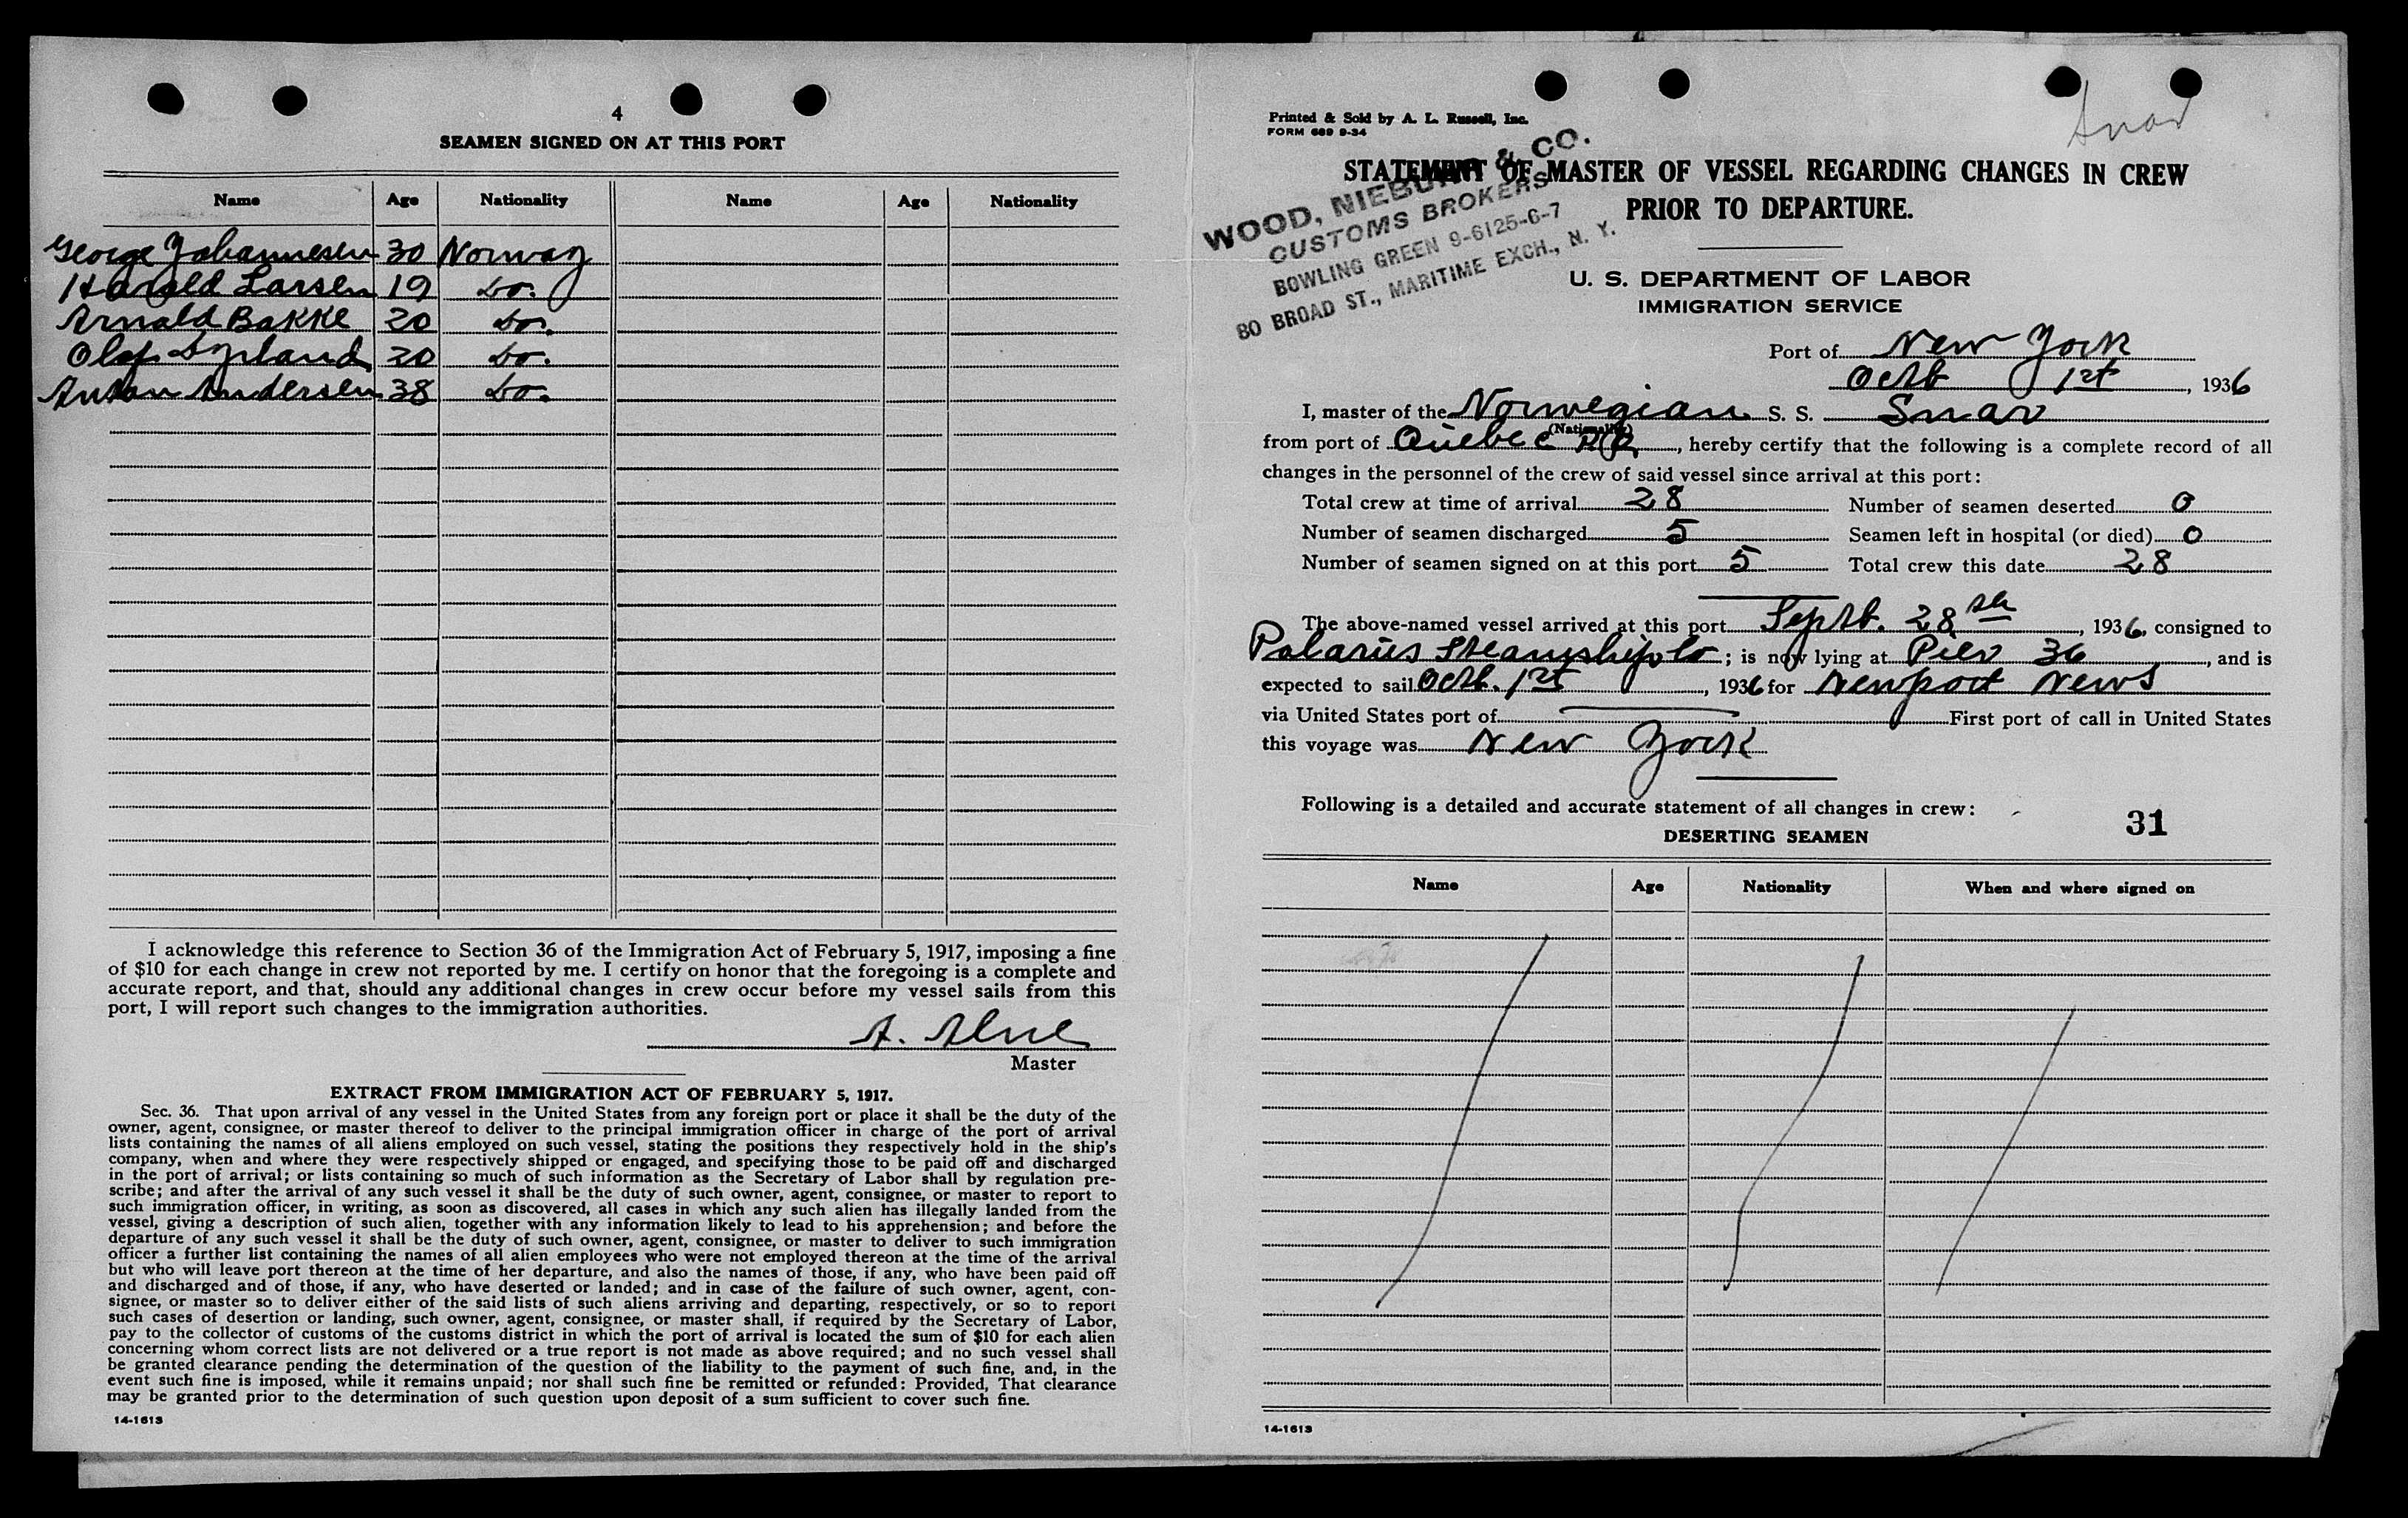 4
SEAMEN SIGNED ON AT THIS PORT
Name Age Nationality Name Age Nationality
George Johannesen 30 Norway
Harald Larsen 19 Do.
Arnold Bakke 20 Do.
Olaf 20 Do.
Anton Andersen 38 Do.
I acknowledge this reference to Section 36 of the Immigration Act of February 5, 1917, imposing a fine
of $10 for each change in crew not reported by me. I certify on honor that the foregoing is a complete and
accurate report, and that, should any additional changes in crew occur before my vessel sails from this
port, I will report such changes to the immigration authorities.
A.
Master
EXTRACT FROM IMMIGRATION ACT OF FEBRUARY 5, 1917.
Sec. 36. That upon arrival of any vessel in the United States from any foreign port or place it shall be the duty of the
owner, agent, consignee, or master thereof to deliver to the principal immigration officer in charge of the port of arrival
lists containing the names of all aliens employed on such vessel, stating the positions they respectively hold in the ship's
company, when and where they were respectively shipped or engaged, and specifying those to be paid off and discharged
in the port of arrival; or lists containing so much of such information as the Secretary of Labor shall by regulation pre-
scribe; and after the arrival of any such vessel it shall be the duty of such owner, agent, consignee, or master to report to
such immigration officer, in writing, as soon as discovered, all cases in which any such alien has illegally landed from the
vessel, giving a description of such alien, together with any information likely to lead to his apprehension; and before the
departure of any such vessel it shall be the duty of such owner, agent, consignee, or master to deliver to such immigration
officer a further list containing the names of all alien employees who were not employed thereon at the time of the arrival
but who will leave port thereon at the time of her departure, and also the names of those, if any, who have been paid off
and discharged and of those, if any, who have deserted or landed; and in case of the failure of such owner, agent, con-
signee, or master so to deliver either of the said lists of such aliens arriving and departing, respectively, or so to report
such cases of desertion or landing, such owner, agent, consignee, or master shall, if required by the Secretary of Labor,
pay to the collector of customs of the customs district in which the port of arrival is located the sum of $10 for each alien
concerning whom correct lists are not delivered or a true report is not made as above required; and no such vessel shall
be granted clearance pending the determination of the question of the liability to the payment of such fine, and, in the
event such fine is imposed, while it remains unpaid; nor shall such fine be remitted or refunded: Provided, That clearance
may be granted prior to the determination of such question upon deposit of a sum sufficient to cover such fine.
14-1613
Snar
Printed & Sold by A. L. Russell, Inc.
FORM 689 9-34
STATEMENT OF MASTER OF VESSEL REGARDING CHANGES IN CREW
PRIOR TO DEPARTURE.
WOOD, NIEBUHR & CO.
CUSTOMS BROKERS
BOWLING GREEN 9-6125-6-7
80 BROAD ST., MARITIME EXCH., N. Y.
U. S. DEPARTMENT OF LABOR
IMMIGRATION SERVICE
Port of New York
Octb 1st, 1936
I, master of the Norwegian S. S. Snar
(Nationality)
from port of Quebec P.Q., hereby certify that the following is a complete record of all
changes in the personnel of the crew of said vessel since arrival at this port:
Total crew at time of arrival 28 Number of seamen deserted 0
Number of seamen discharged 5 Seamen left in hospital (or died) 0
Number of seamen signed on at this port 5 Total crew this date 28
The above-named vessel arrived at this port Septb. 28th, 1936, consigned to
Polarius Steamship Co; is now lying at Pier 36, and is
expected to sail Octb. 1st, 1936 for Newport News
via United States port of First port of call in United States
this voyage was New York
Following is a detailed and accurate statement of all changes in crew:
31
DESERTING SEAMEN
Name Age Nationality When and where signed on
14-1613